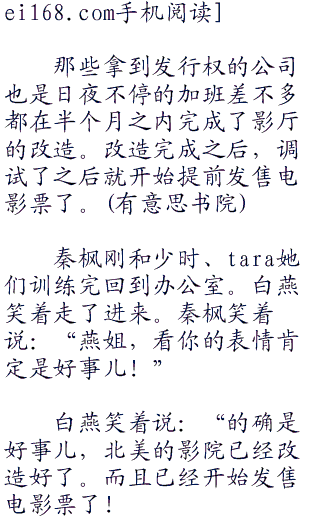 ei168.com手机阅读]
那些拿到发行权的公司
也是日夜不停的加班差不多
都在半个月之内完成了影厅
的改造。改造完成之后，调
试了之后就开始提前发售电
影票了。(有意思书院)
秦枫刚和少时、tara她
们训练完回到办公室。白燕
笑着走了进来。秦枫笑着
说：“燕姐，看你的表情肯
定是好事儿！”
白燕笑着说：“的确是
好事儿，北美的影院已经改
造好了。而且已经开始发售
电影票了！